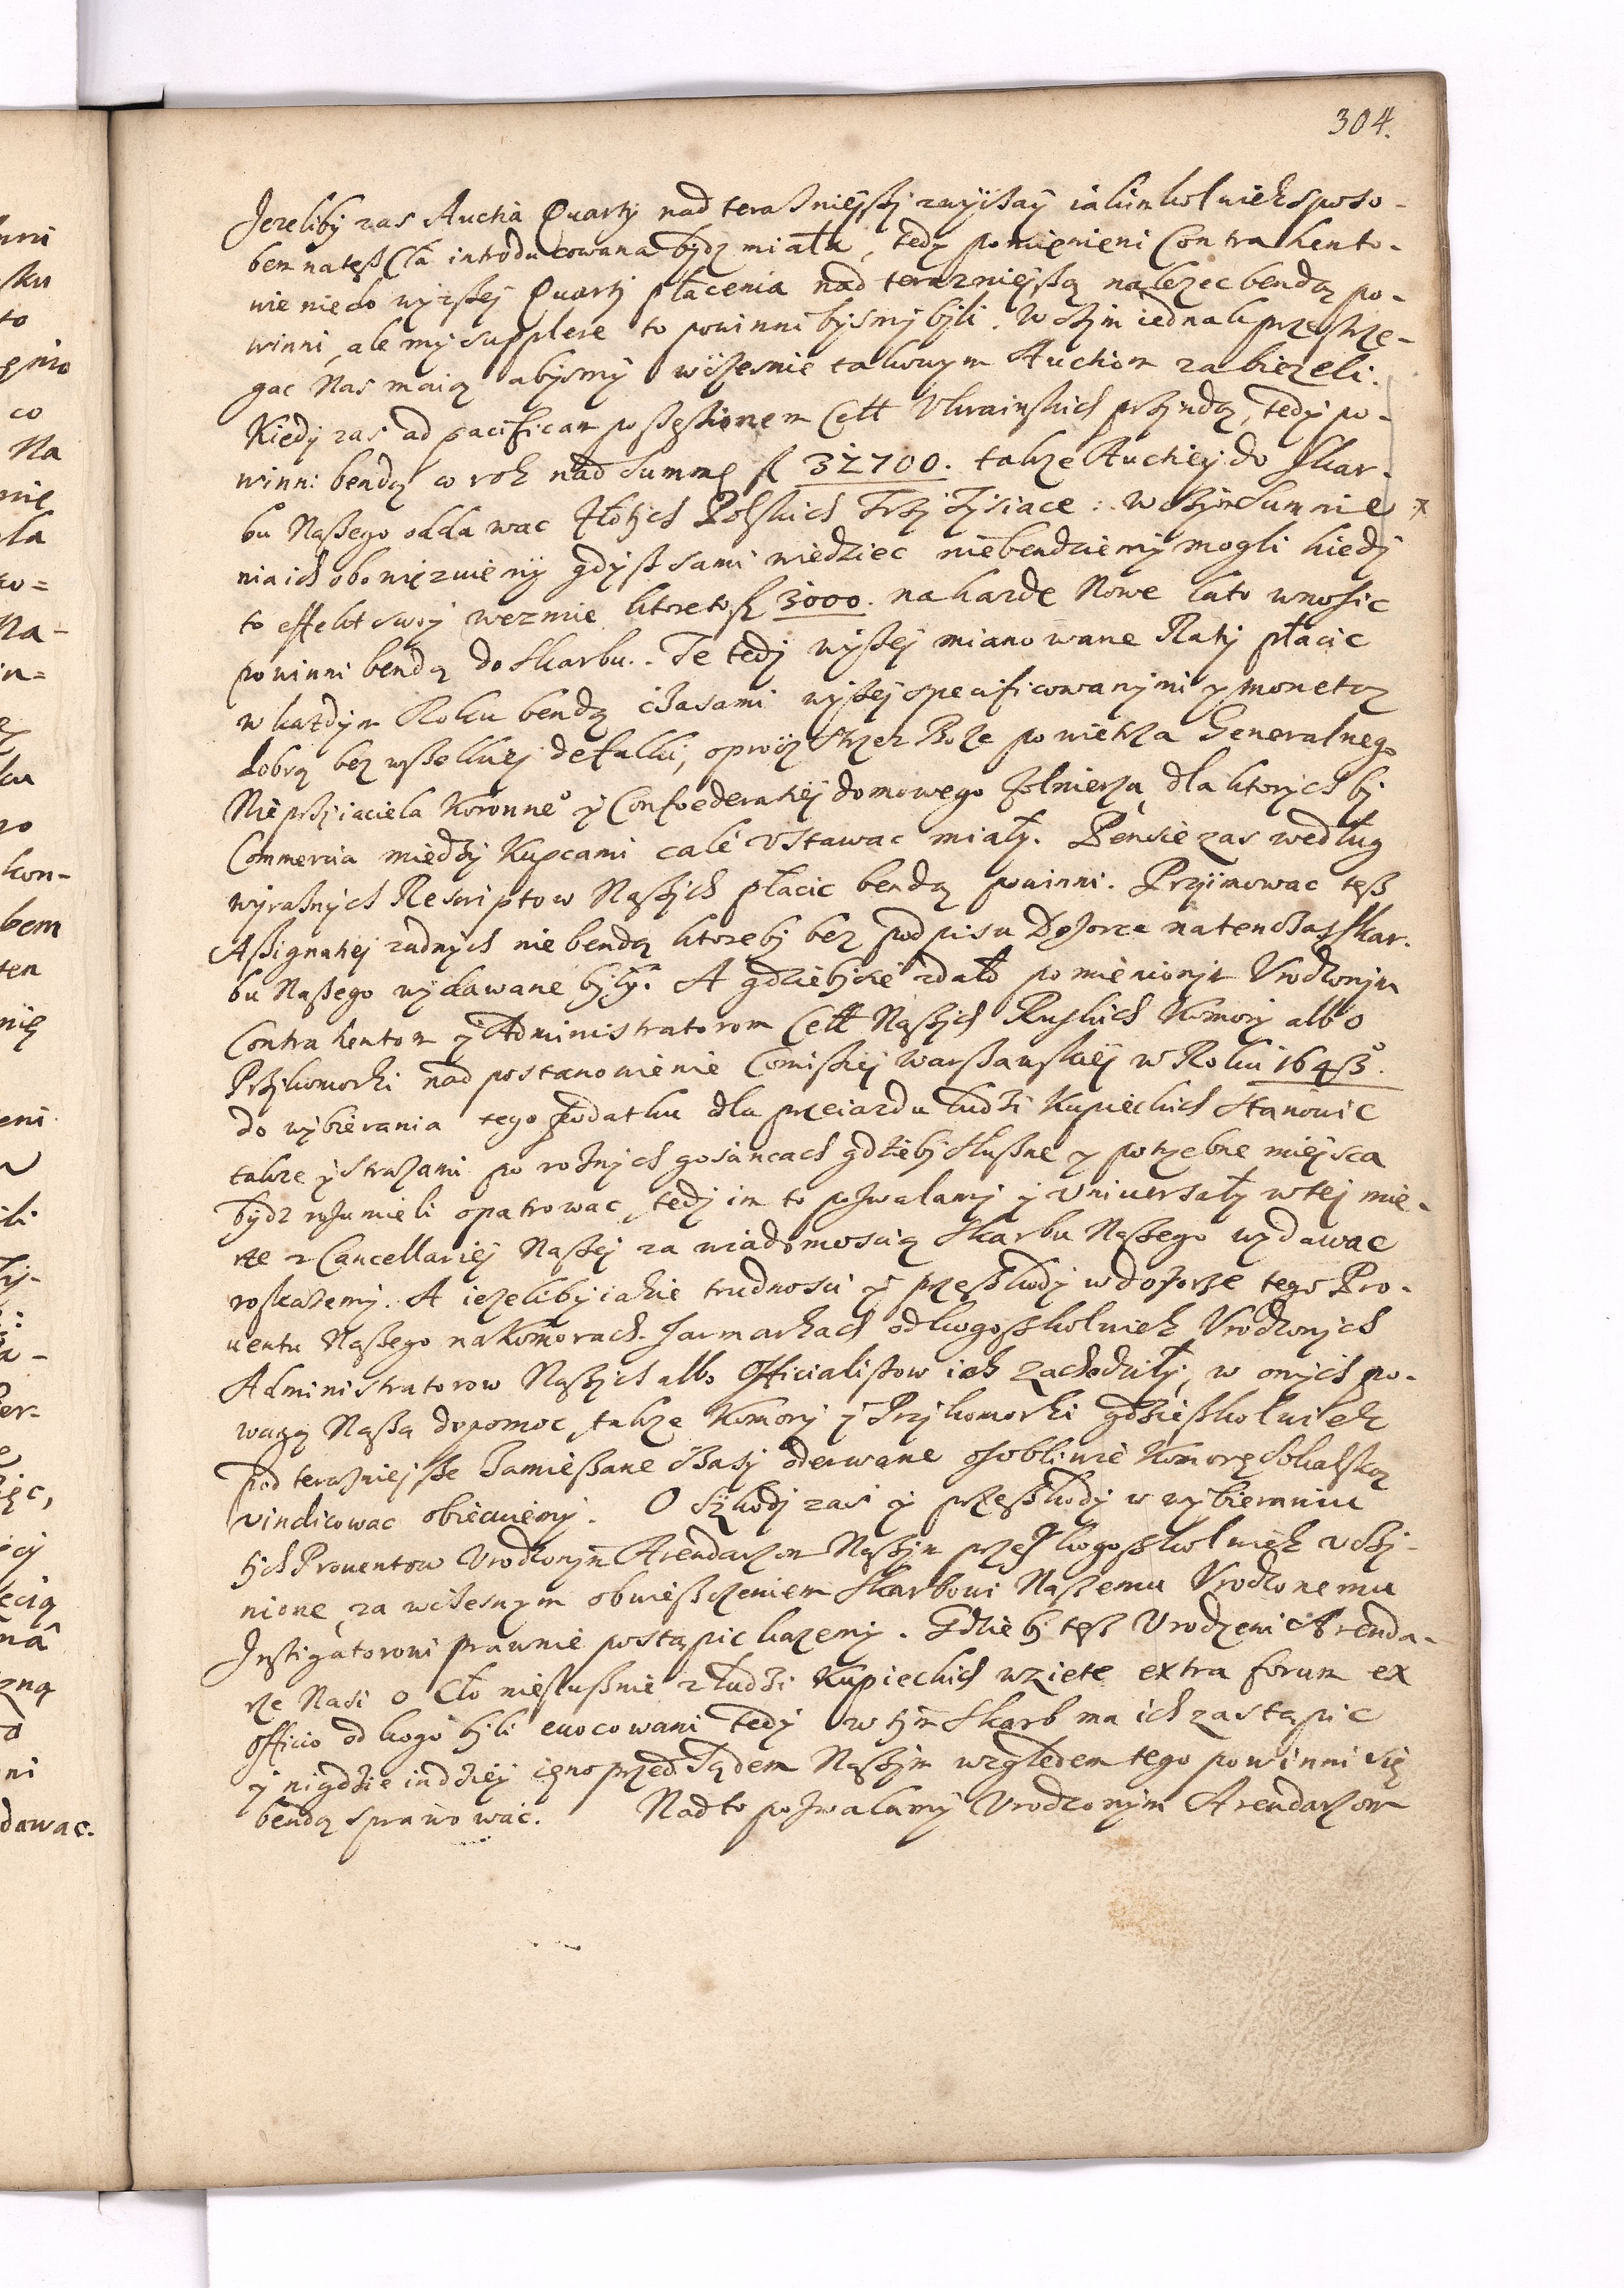 304.
Jezeliby zas Auctia Quarty nad terasnieyszy zwyczay iakimkolwiek sposo-
bem natęsz Cła introducowana bydz miała, tedy pomięnieni Contrahento-
wie nie do wyższey Quarty płacenia nad terazniejszą należec bendą po-
winni, ale my supplere to powinni bysmy byli. W czym iednak przestrze-
gac Nas maią abysmy wczesnie takowym Auctiom zabiezeli.
Kiedy zas ad pacificam possessionem Cełł Ukrainskich przyidą, tedy po-
winni bendą w rok nad Summę fl 32700. także Auctiey do Skar-
bu Naszego oddawac Złotych Polskich Trzy Tysiace: w czym Sumnie-
nia ich obowięzuiemy gdysz sami wiedziec niebendziemy mogli kiedy
to effekt swoy wezmie ktore to fl 3000. na kazde Nowe Lato wnosic
powinni bendą do Skarbu. Te tedy wyszey mianowane Raty płacic
w każdym Roku bendą czasami wyszey specificowanymi y monetą
dobrą bez wszelkiey defalki, oprocz strzez Boze powietrza Generalnego
Nieprzyiaciela Koronneo y Confoederatiey domowego Zołnierza, dla ktorych by
Commercia miedzy Kupcami cale ustawac miały. Pensie zas według
wyrasnych Rescriptow Naszych płacic bendą powinni. Przyimowac tesz
Assignatiey zadnych nie bendą ktoreby bez podpisu Dozorce natenczas Skar-
bu Naszego wydawane były. A gdzieby sie zdało pomienionym Urodzonym
Contrahentom y Administratorom Cełł Naszych Ruskich Komory albo
Przykomorki nad postanowienie Comissiey Warszawskiey w Roku 1643o.
do wybierania tego podatku dla przeiazdu ludzi Kupieckich stanowic
takze y strazami po roznych goscincach gdzieby słuszne y potrzebne mieysca
bydz rozumieli opatrowac, tedy im to pozwalamy y Uniwersały w tey mie-
rze z Cancellariey Naszey za wiadomoscią Skarbu Naszego wydawac
roskażemy. A iezeliby iakie trudnosci y przeszkody w dozorze tego Pro-
uentu Naszego na Komorach Jarmarkach od kogoszkolwiek Urodzonych
Administratorow Naszych albo Officialistow ich zachodziły, w onych po-
wagą Naszą dopomoc, takze Komory y Przykomorki gdzieszkolwiek
pod terazniejsze zamieszane czasy oderwane osobliwie Komorę Sokalską
vindicowac obiecuiemy. O Szkody zasi y przeszkody w wybieraniu
tych Prouentow Urodzonym Arendarzom Naszym przez kogoszkolwiek uczy-
nione za wczesnym obwieszczeniem Skarbowi Naszemu Urodzonemu
Instigatorowi prawnie postąpic kazemy. Gdzie by tesz Urodzeni Arenda-
rze Nasi o Cło niesłusznie z ludzi Kupieckich wziete extra forum ex
officio od kogo byli euocowani tedy w tym Skarb ma ich zastąpic
y nigdzie indziey ieno przed Sądem Naszym względem tego powinni się
bendą sprawowac. Nadto pozwalamy Urodzonym Arendarzom